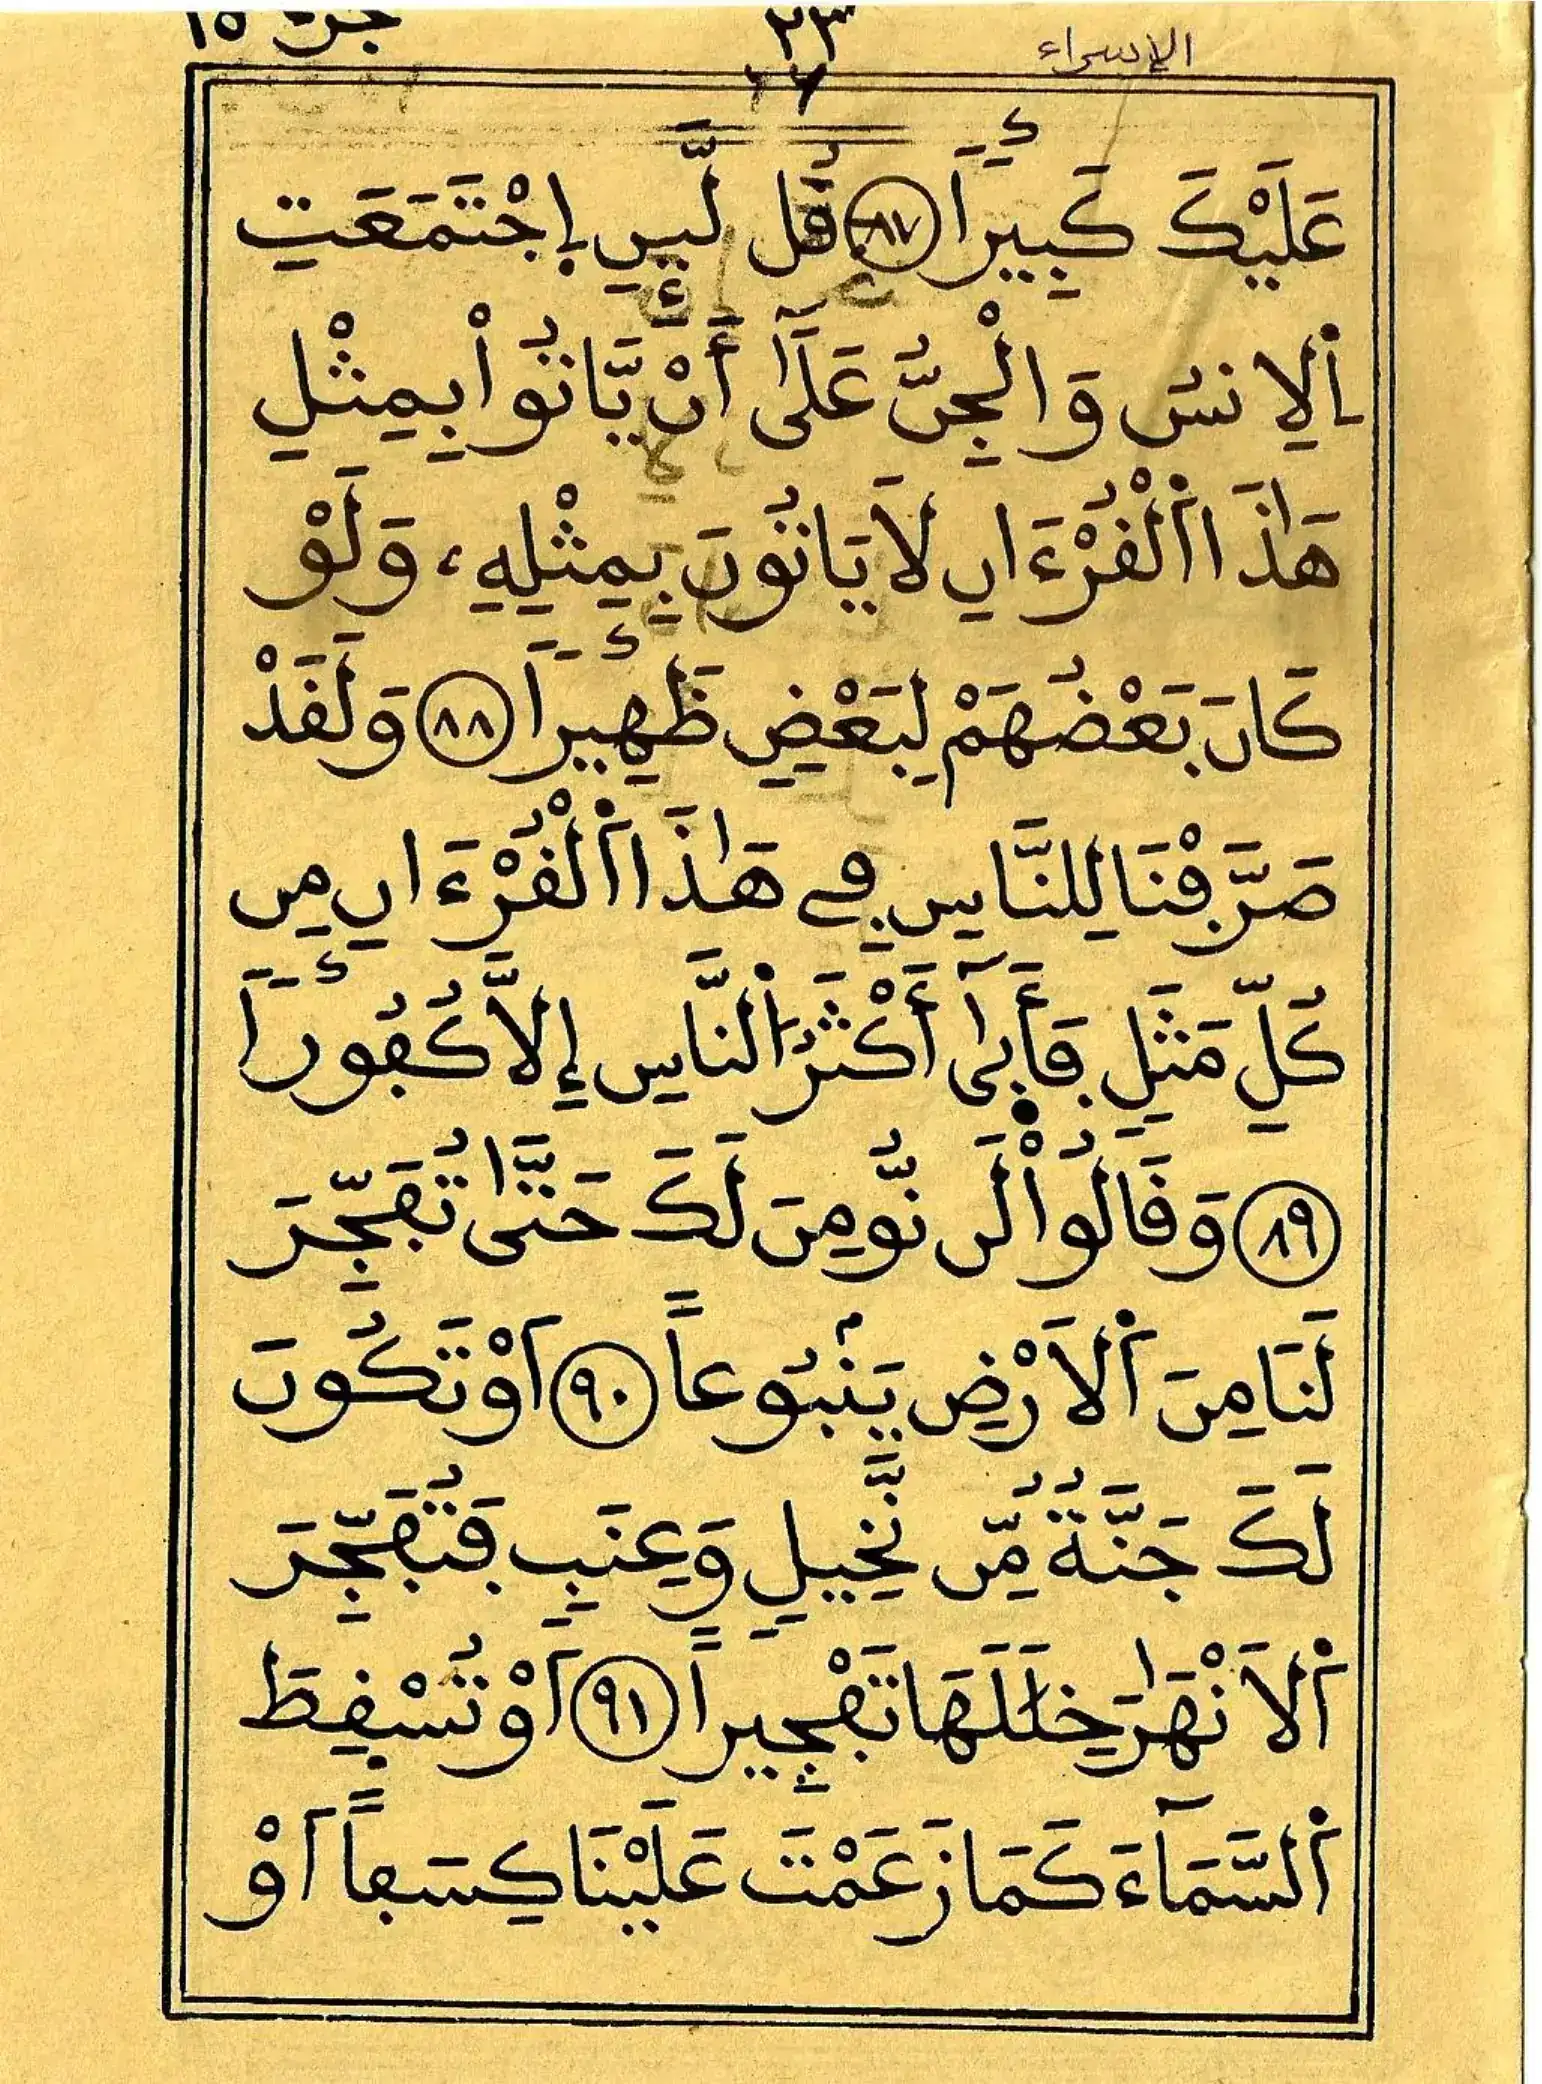 جزء ١٥ ٢٣ الإسراء
عَلَيْكَ كَبِيراً ٨٧ قُل لَّيِٕنِ اِ۪جْتَمَعَتِ
اِ۬لِانسُ وَالْجِنُّ عَلَىٰٓ أَنْ يَّاتُواْ بِمِثْلِ
هَٰذَا اَ۬لْقُرْءَانِ لَا يَاتُونَ بِمِثْلِهِۦ وَلَوْ
كَانَ بَعْضُهُمْ لِبَعْضٖ ظَهِيراً ٨٨ وَلَقَدْ
صَرَّفْنَا لِلنَّاسِ فِے هَٰذَا اَ۬لْقُرْءَانِ مِن
كُلِّ مَثَلٖ فَأَبَىٰٓ أَكْثَرُ اُ۬لنَّاسِ إِلَّا كُفُوراً
٨٩ وَقَالُواْ لَن نُّومِنَ لَكَ حَتَّىٰ تُفَجِّرَ
لَنَا مِنَ اَ۬لَارْضِ يَنۢبُوعاً ٩٠ اَوْ تَكُونَ
لَكَ جَنَّةٌ مِّن نَّخِيلٖ وَعِنَبٖ فَتُفَجِّرَ
اَ۬لَانْهَٰرَ خِلَٰلَهَا تَفْجِيراً ٩١ اَوْ تُسْقِطَ
اَ۬لسَّمَآءَ كَمَا زَعَمْتَ عَلَيْنَا كِسَفاً اَوْ